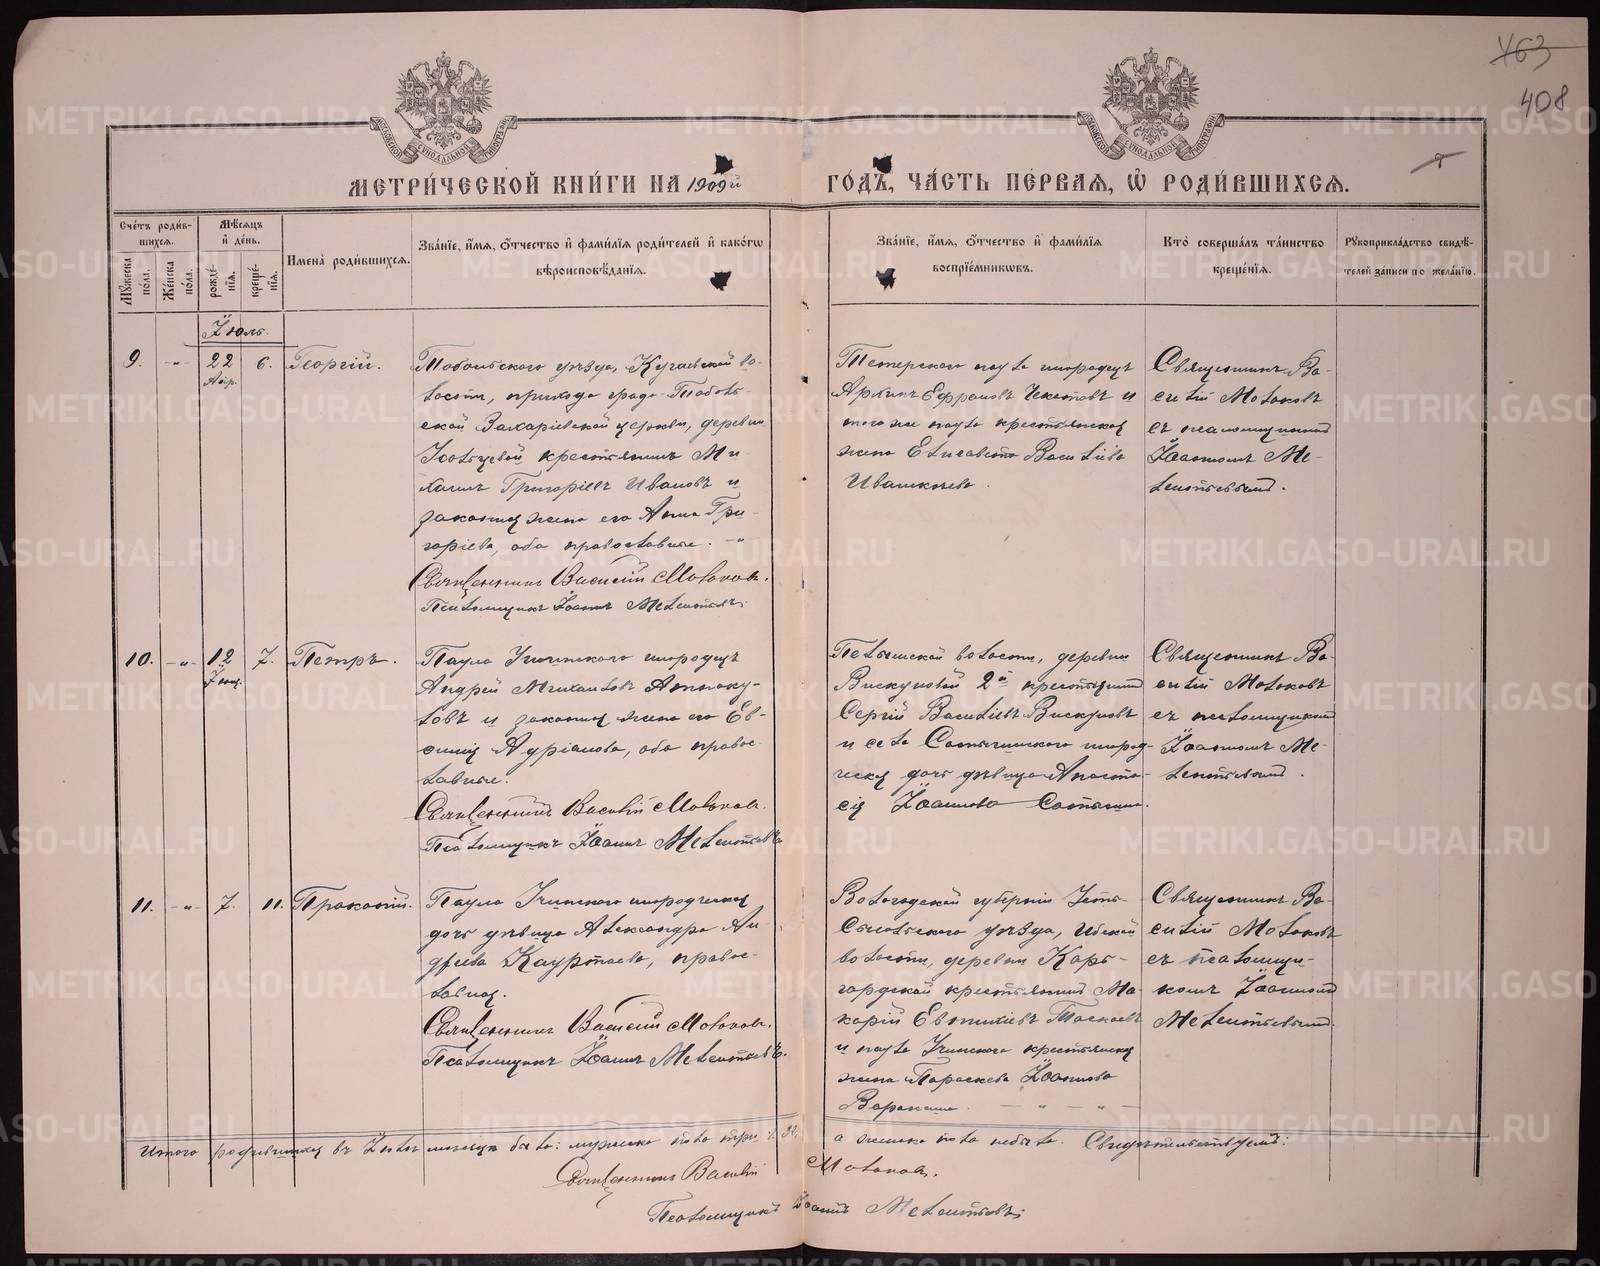 463
408
МЕТРИ́ЧЕСКОЙ КНИ́ГИ НА 1909й ГО́ДЪ, ЧА́СТЬ ПЕ́РВАЯ, Ѡ РОДИ́ВШИХСЯ.
Сче́тъ роди́вшихся.
Му́жеска по́ла.
Же́нска по́ла.
Мѣ́сяцъ и де́нь.
рожде́нія.
креще́нія.
Имена̀ роди́вшихся.
Зва́ніе, и́мя, о́тчество и фами́лія роди́телей и како́гѡ
вѣроисповѣ́данія.
Зва́ніе, и́мя, о́тчество и фами́лія
воспріе́мниковъ.
Кто̀ соверша́лъ та́инство
креще́нія.
Рукоприкла́дство свидѣ́-
телей за́писи по жела́нію.
Іюль.
9. -"- 22 Апр. 6. Георгій.
Тобольскаго уѣзда, Кугаевской во-
лости, прихода града Тоболь-
ской Захаріевской церкви, деревни
крестьянинъ Ми-
хаилъ Григорьевъ Ивановъ и
законная жена его Анна Гри-
горіева, оба православные. -"
Священникъ Василій Молоковъ.
Псаломщикъ Іоаннъ Мелентьевъ.
паула инородецъ
Ефремовъ Чекатовъ и
того же паула крестьянская
жена Елисавета Васильева
Ивашкеева.
Священникъ Ва-
силій Молоковъ
съ псаломщикомъ
Іоанномъ Ме-
лентьевымъ.
10. -"- 12 Іюн. 7. Петръ.
Паула Учинскаго инородецъ
Андрей Михаиловъ
ловъ и законная жена его Ев-
Адріанова, оба правос-
лавные.
Священникъ Василій Молоковъ.
Псаломщикъ Іоаннъ Мелентьевъ
Пелымской волости, деревни
Вискуновой 2й крестьянинъ
Сергій Васильевъ Вискуновъ
и села Сатыгинскаго инород-
ческая дочь дѣвица Анаста-
сія Іоаннова Сатыгина.
Священникъ Ва-
силій Молоковъ
съ псаломщикомъ
Іоанномъ Ме-
лентьевымъ.
11. -"- 7. 11. Прокопій.
Паула Учинскаго инородческая
дочь дѣвица Александра Ан-
дреева Кауртаева, правос-
лавная.
Священникъ Василій Молоковъ.
Псаломщикъ Іоаннъ Мелентьевъ.
Вологодской губерніи Усть-
Сысольскаго уѣзда, Ибской
волости, деревни Карь-
гордской крестьянинъ Ма-
карій Евфиміевъ
и паула Учинскаго крестьянская
жена Параскева Іоаннова
Варакина. — " — " —
Священникъ Ва-
силій Молоковъ
съ псаломщи-
комъ Іоанномъ
Мелентьевымъ.
Итого родившихся въ Іюлѣ мѣсяцѣ было: мужеска пола три /3/, а женска пола небыло. Свидѣтельствуемъ:
Священникъ Василій Молоковъ.
Псаломщикъ Іоаннъ Мелентьевъ.